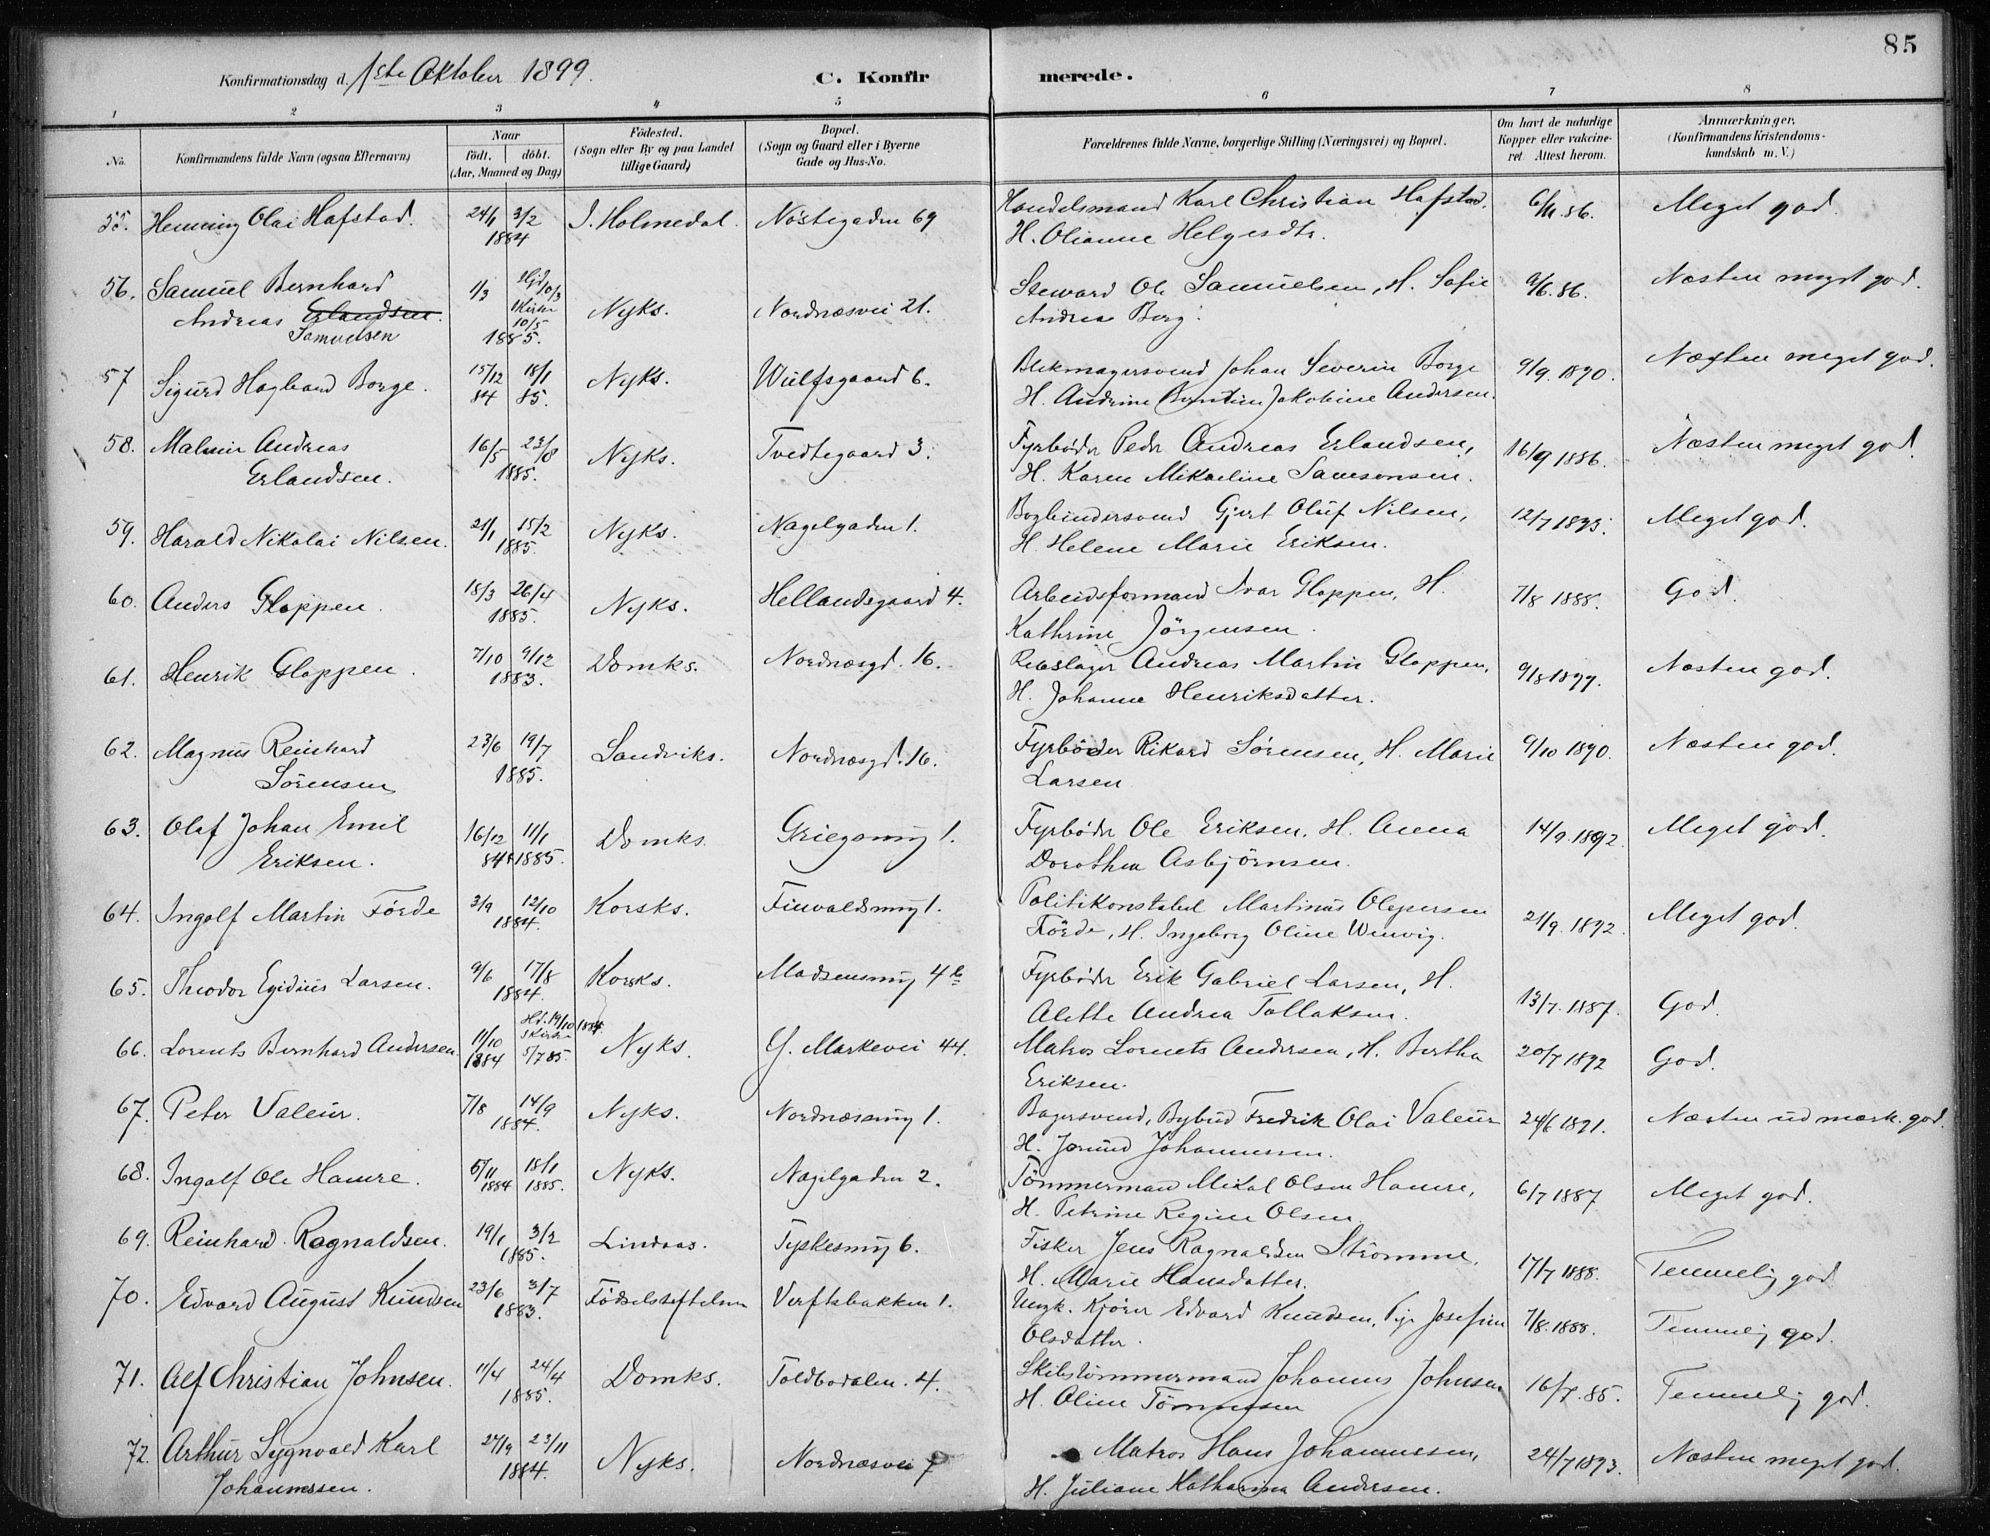 85
Konfirmationsdag d. 1ste Oktober 1899.
C. Konfirmerede.
1 2 3 4 5 6 7 8
No. Konfirmandens fulde Navn (ogsaa Efternavn) Naar födt. döbt. (Aar, Maaned og Dag) Födested. (Sogn eller By og paa Landet tillige Gaard) Bopæl. (Sogn og Gaard eller i Byerne Gade og Hus-No. Forældrenes fulde Navne, borgerlige Stilling (Næringsvei) og Bopæl. Om havt de naturlige Kopper eller vakcineret. Attest herom. Anmærkninger. (Konfirmandens Kristendomskundskab m. V.)
55. Henning Olai Hafstad. 24/1 3/2 1884 I. Holmedal. Nöstegaden 69 Handelsmand Karl Christian Hafstad. 6/11 86. Meget god.
H. Olianne Helgesdtr.
56. Samuel Bernhard 1/3 Hjd 10/3 Nyks. Nordnæsvei 21. Steward Ole Samuelsen, H. Sofie 9/6. 86. Næsten meget god.
Andreas Erlandsen. Kirken 10/5 Andrea Berg.
Samuelsen 1885.
57 Sigurd Hagband Borge. 15/12 84 18/1 85. Nyks. Wulfsgaard 6. Blikmagersvend Johan Severin Borge 9/9. 1890. Næsten meget god.
H. Andrine Jakobine Andersen.
58. Malvin Andreas 16/5 23/8 Nyks. Tvedtegaard 3. Fyrböder Peder Andreas Erlandsen, 16/9 1886. Næsten meget god.
Erlandsen. 1885. H. Karen Mikaeline Samsonsen.
59. Harald Nikolai Nilsen. 21/1 15/2 1885. Nyks. Nagelgaden 1. Bogbindersvend Gjert Oluf Nilsen, 12/7 1893. Meget god.
H. Helene Marie Eriksen.
60. Anders Gloppen. 18/3 26/4 1885. Nyks. Hellandsgaard 4. Arbeidsformand Ivar Gloppen, H. 7/8 1888. God.
Kathrine Jörgensen.
61. Henrik Gloppen. 7/10 9/12 1883. Domks. Nordnæsgd. 16. Rebslager Andreas Martin Gloppen, 9/8 1899. Næsten god.
H. Johanne Henriksdatter.
62. Magnus Reinhard 23/6 19/7 Sandviks. Nordnæsgd. 16. Fyrböder Rikard Sörensen, H. Marie 9/10 1890. Næsten god.
Sörensen 1885. Larsen
63. Olaf Johan Emil 16/12 11/1 Domks. Griegsmug 1. Fyrböder Ole Eriksen, H. Anna 14/9. 1892. Meget god.
Eriksen. 84 1885. Dorothea Asbjörnsen.
64. Ingolf Martin Förde 3/9 12/10 1884. Korsks. Finvaldsmug 1. Politikonstabel Martinus Olepersen 21/9. 1892. Meget god.
Förde, H. Ingeborg Oline
65. Theodor Egidius Larsen. 9/6 17/8 1884. Korsks. Madsensmug 4b Fyrböder Erik Gabriel Larsen, H. 13/7. 1887. God.
Alette Andrea Tollaksen.
66. Lorents Bernhard Andersen. 11/10 1884 Hd. 19/10 1884. i Kirken 5/7 85. Nyks. Y. Markevei 44. Matros Lorents Andersen, H. Bertha 20/7 1892 God.
Eriksen.
67. Peter Valeur. 7/8 14/9 1884. Nyks. Nordnæsmug 1. Bagersvend, Bybud Fredrik Olai Valeur 24/6 1891. Næsten udmærk. god.
H. Johannessen.
68. Ingolf Ole Hamre. 5/11 1884 18/1 1885. Nyks. Nagelgaden 2. Tömmermand Mikal Olsen Hamre, 6/7 1887 Meget god.
H. Petrine Regine Olsen
69. Reinhard Ragnaldsen. 19/1 3/2 1885. Lindaas. Tyskesmug 6. Fisker Jens Ragnaldsen Strömme, 17/7 1888. Temmelig god
H. Marie Hansdatter.
70. Edvard August Knudsen 23/6 3/7 1883. Födselsstiftelsen Verftsbakken 1. Ungk. Kjörer Edvard Knudsen, Pige Josefine 7/8. 1888. Temmelig god.
Olsdatter.
71. Alf Christian Johnsen. 11/4 24/4 1885. Domks. Toldbodalm. 4. Skibstömmermand Johannes Johnsen 16/7. 85. Temmelig god.
H. Oline Tönnesen
72. Arthur Sygnvald Karl 27/9 23/11 Nyks. Nordnæsvei 7 Matros Hans Johannessen, 24/7 1893. Næsten meget god.
Johannessen. 1884. H. Juliane Katharina Andersen.